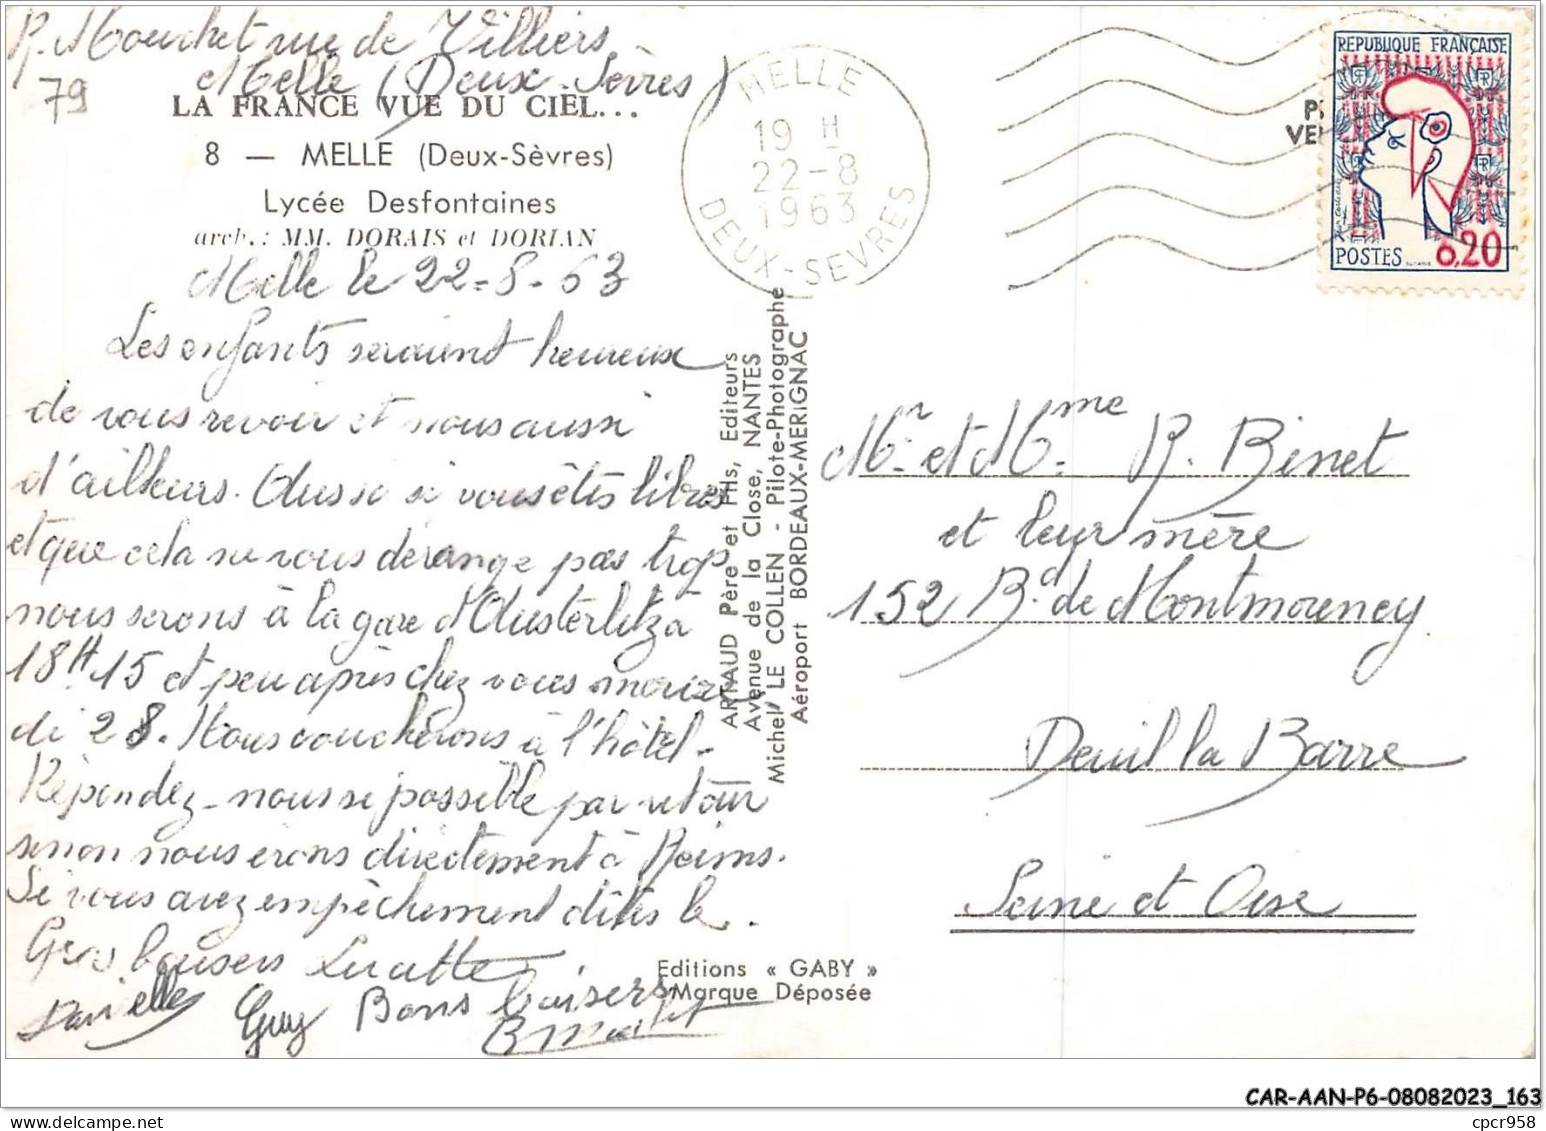 R. Mouchet rue de Villiers
Melle (Deux-Sèvres)
79
LA FRANCE VUE DU CIEL...
8 — MELLE (Deux-Sèvres)
Lycée Desfontaines
arch. : MM. DORAIS et DORIAN
Melle le 22-8-63
Les enfants seraient heureux
de vous revoir et nous aussi
d'ailleurs. Aussi si vous êtes libres
et que cela ne vous dérange pas trop
nous serons à la gare d'Austerlitz à
18H15 et peu après chez vous mercre
di 28. Nous coucherons à l'hôtel.
Répondez-nous si possible par retour
sinon nous irons directement à Reims.
Si vous avez empêchement dites le.
Gros baisers Lucette
Danielle Guy Bons baisers
MELLE
19 H
22-8
1963
DEUX-SEVRES
ARTAUD Père et Fils, Editeurs
Avenue de la Close, NANTES
Michel LE COLLEN - Pilote-Photographe
Aéroport BORDEAUX-MERIGNAC
Editions « GABY »
Marque Déposée
REPUBLIQUE FRANÇAISE
POSTES 0,20
Mr. et Mme. R. Binet
et leur mère
152 Bd. de Montmorency
Deuil la Barre
Seine et Oise
CAR-AAN-P6-08082023_163
cpcr958